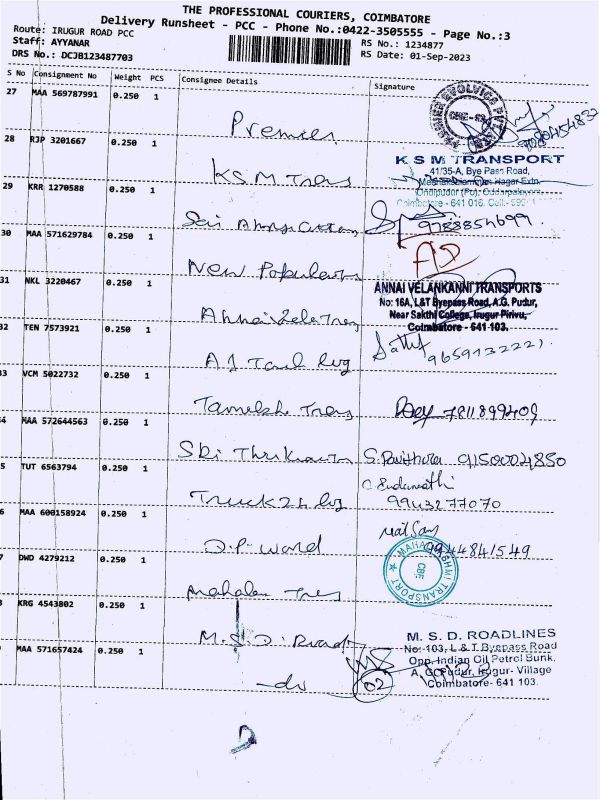 THE PROFESSIONAL COURIERS, COIMBATORE
Delivery Runsheet - PCC - Phone No.:0422-3505555 - Page No.:3
Route: IRUGUR ROAD PCC
Staff: AYYANAR
RS No.: 1234877
DRS No.: DCJB123487703
RS Date: 01-Sep-2023
S No Consignment No Weight PCS Consignee Details Signature
27 MAA 569787991 0.250 1
Premier
28 RJP 3201667 0.250 1
K.S.M Trans
K S M TRANSPORT
41/35-A, Bye Pass Road,
Nagar Extn.
Ondipudur (Po),
Coimbatore - 641 016. Cell:-
29 KRR 1270588 0.250 1
Sai
9788854699
30 MAA 571629784 0.250 1
New
31 NKL 3220467 0.250 1
Annai Vela Trans
ANNAI VELANKANNI TRANSPORTS
No: 16A, L&T Byepass Road, A.G. Pudur,
Near Sakthi College, Irugur Pirivu,
Coimbatore - 641 103.
32 TEN 7573921 0.250 1
9659132221
33 VCM 5022732 0.250 1
7811899409
34 MAA 572644563 0.250 1
Sri
S. Pavithra 9150004850
5 TUT 6563794 0.250 1
Truck 24
9943277070
6 MAA 600158924 0.250 1
D.P. World
9944841549
7 DWD 4279212 0.250 1
MAHALAKSHMI TRANSPORT
CBE
KRG 4543802 0.250 1
M.S.D. Roads
MAA 571657424 0.250 1
-do
02
M. S. D. ROADLINES
No: 103, L & T Byepass Road
Opp. Indian Oil Petrol Bunk,
A. G. Pudur, Irugur - Village
Coimbatore- 641 103.